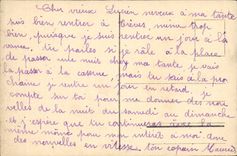 Cher vieux Lucien neveux à ma tante
suis bien rentrer à Trèves même trop
bien, puisque je suis rentrer un jour à la
. tu parles si je râle à la place
de passer une nuit chez ma tante je vais
la passer à la caserne, mais tu sais la pro
chaine je rentre un jour en retard, je
compte sur toi pour me donner des nou
velles de la nuit du samedi au dimanche
et j'espère que tu
même pour mon intérêt à moi donc
des nouvelles en vitesse, ton copain Maurice